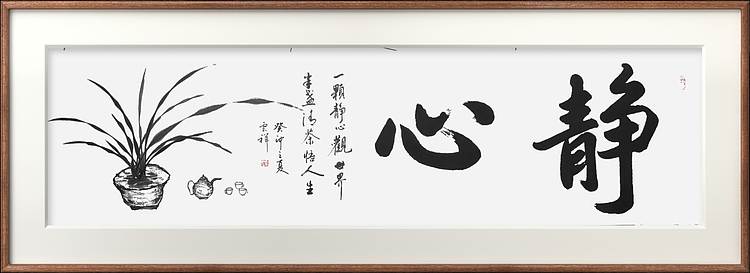 静心
一颗静心觀世界
半盏清茶悟人生
癸卯之夏
云祥